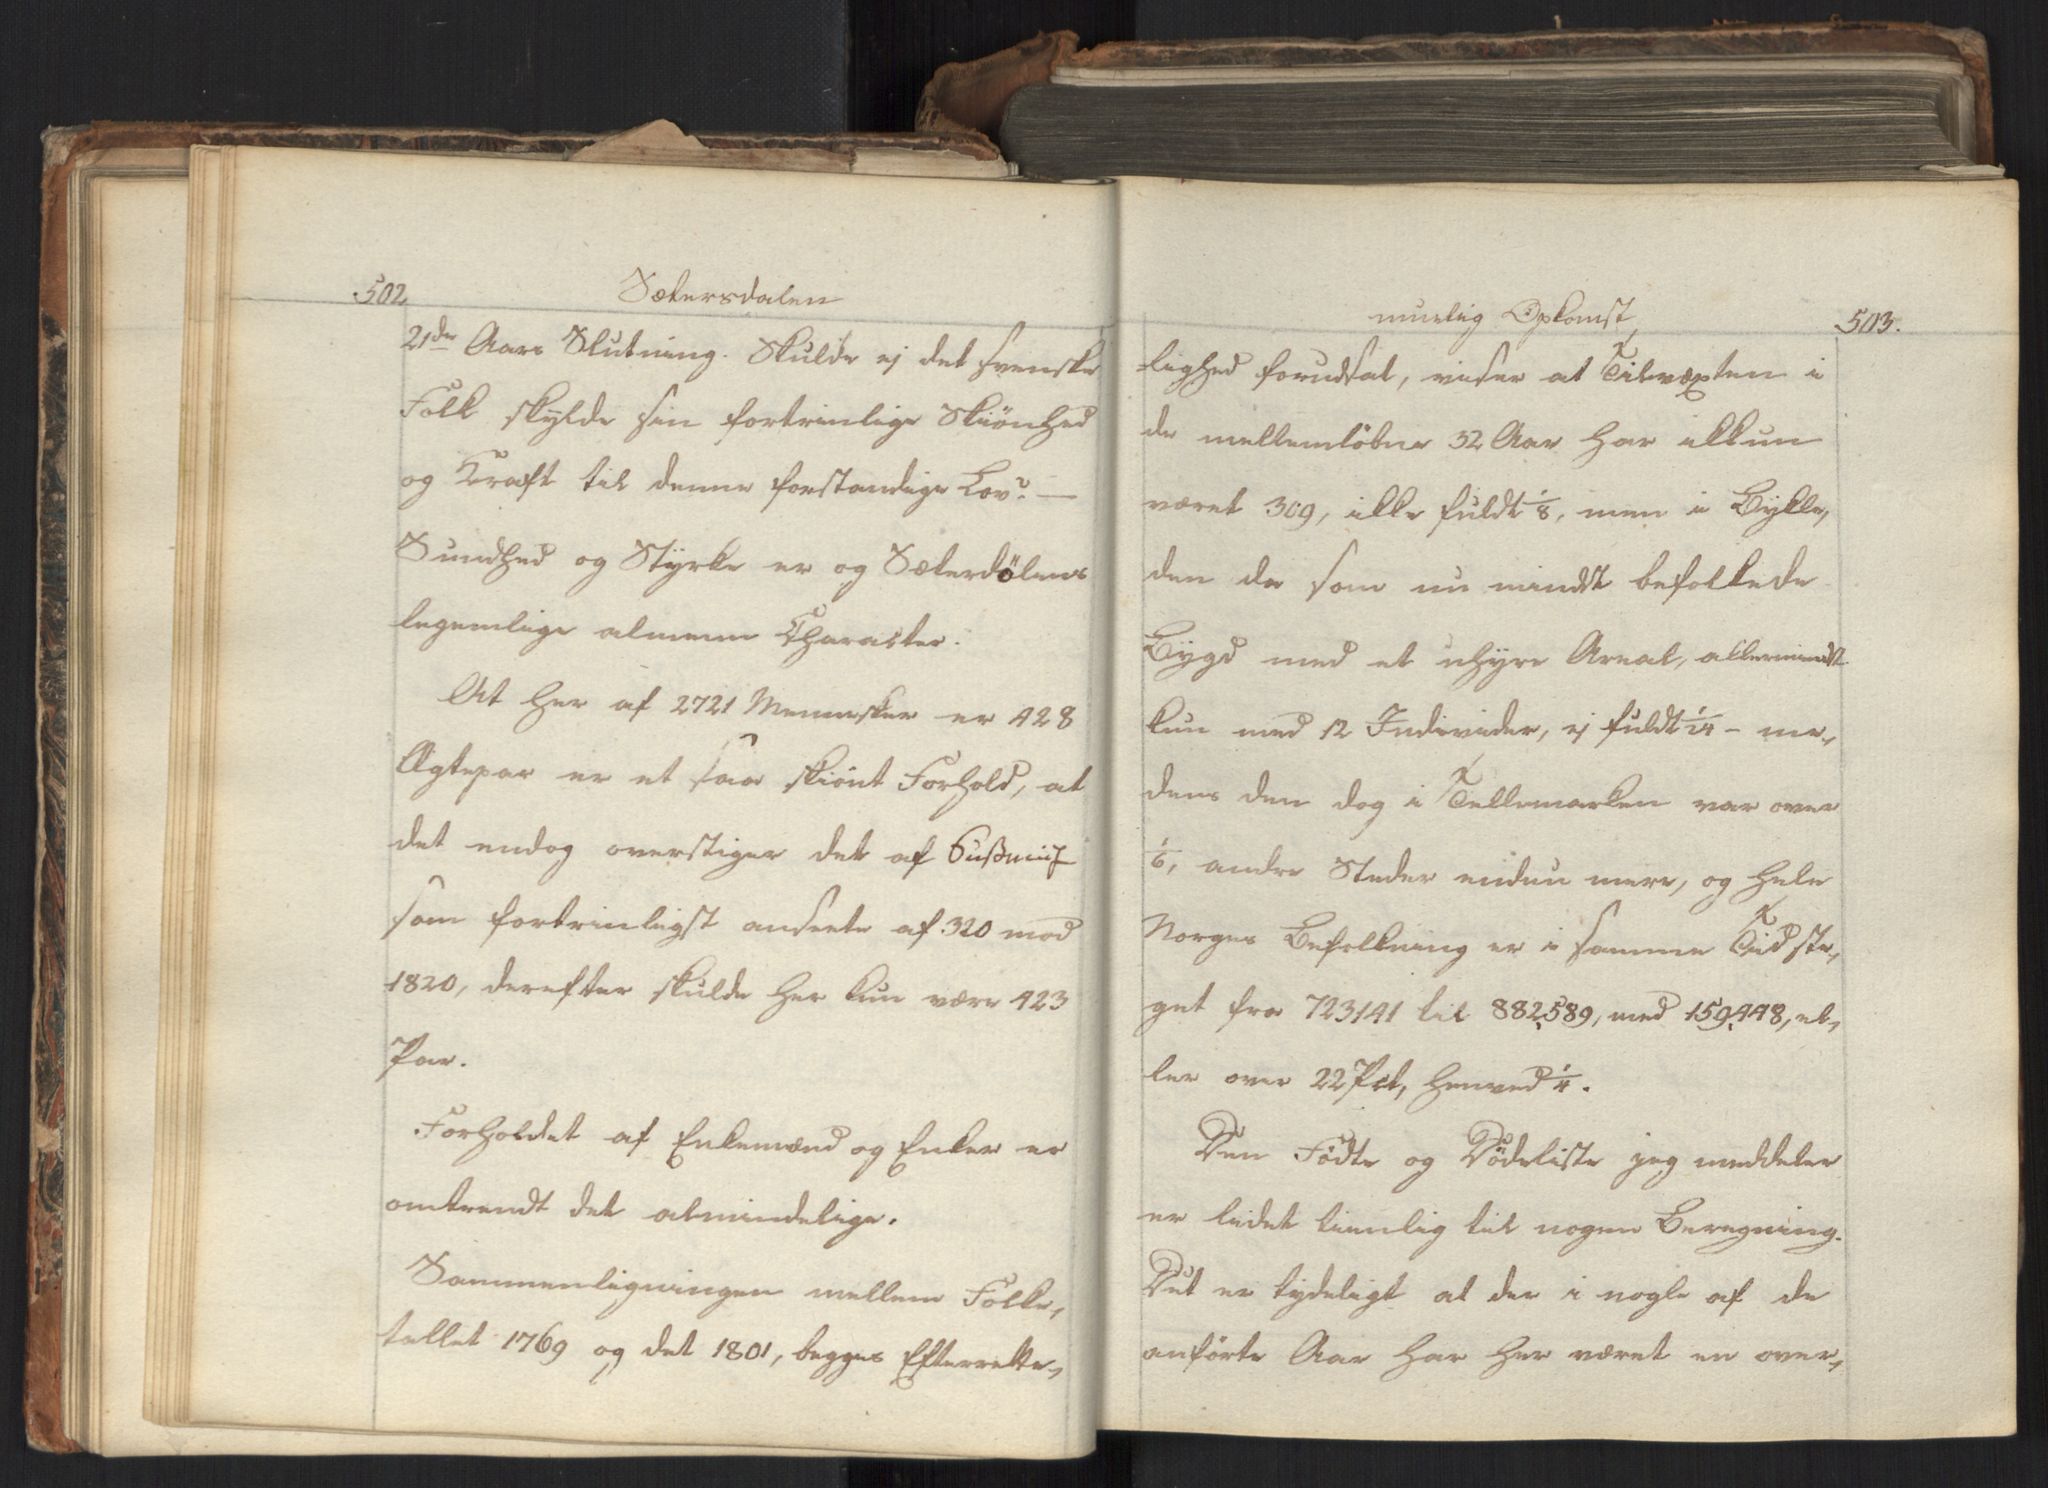 502
Sætersdalen
21de Aars Slutning. Skulde ej det svenske
Folk skylde sin fortrinlige Skiönhed
og Kraft til denne forstandige Lov? —
Sundhed og Styrke er og Sæterdölens
legemlige almene Character.
At her af 2721 Mennesker er 428
Ægtepar er et saa skiönt Forhold, at
det endog overstiger det af Sußmilch
som fortrinligst ansete af 320 mod
1820, derefter skulde her kun være 423
Par.
Forholdet af Enkemænd og Enker er
omtrendt det almindelige.
Sammenligningen mellem Folke,
tallet 1769 og det 1801, begges Efterrette,
muelig Opkomst
503.
lighed forudsat, viser at Tilvæxten i
de mellemlöbne 32 Aar har ikkun
været 309, ikke fuldt 1/8, men i Bykle,
den da som nu mindst befolkede
Bygd med et uhyre Areal, allermindst
kun med 12 Individer, ej fuldt 1/24 – me,
dens den dog i Tellemarken var over
1/6, andre Steder endnu mere, og hele
Norges Befolkning er i samme Tid ste,
get fra 723141 til 882,589, med 159,448, el,
ler over 22 Pct, henved 1/4.
Den Födte og Dödeliste jeg meddeler
er lidet tienlig til nogen Beregning.
Det er tydeligt at der i nogle af de
anförte Aar har her været en over,